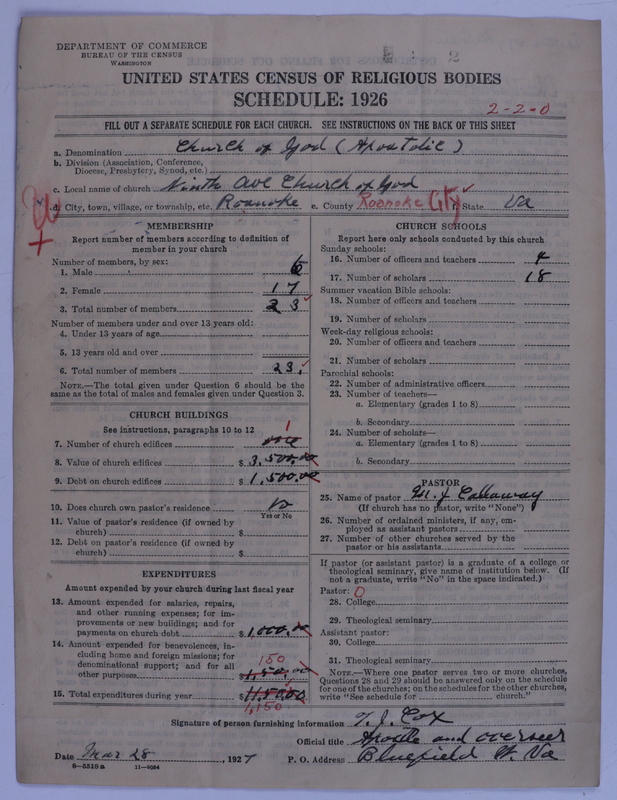 DEPARTMENT OF COMMERCE
BUREAU OF THE CENSUS
WASHINGTON
2
UNITED STATES CENSUS OF RELIGIOUS BODIES
SCHEDULE: 1926
2-2-0
FILL OUT A SEPARATE SCHEDULE FOR EACH CHURCH. SEE INSTRUCTIONS ON THE BACK OF THIS SHEET
a. Denomination Church of God (Apostolic)
b. Division (Association, Conference, Diocese, Presbytery, Synod, etc.)
c. Local name of church Ninth Ave Church of God
d. City, town, village, or township, etc. Roanoke e. County Roanoke City f. State Va
MEMBERSHIP
Report number of members according to definition of
member in your church
Number of members, by sex:
1. Male 6
2. Female 17
3. Total number of members 23
Number of members under and over 13 years old:
4. Under 13 years of age
5. 13 years old and over
6. Total number of members 23.
NOTE.—The total given under Question 6 should be
same as the total of males and females given under Question 3.
CHURCH BUILDINGS
See instructions, paragraphs 10 to 12
1
7. Number of church edifices one
8. Value of church edifices $ 3,500.00
9. Debt on church edifices $ 1,500.00
10. Does church own pastor's residence no
Yes or No
11. Value of pastor's residence (if owned by
church) $
12. Debt on pastor's residence (if owned by
church) $
EXPENDITURES
Amount expended by your church during last fiscal year
13. Amount expended for salaries, repairs,
and other running expenses; for im-
provements or new buildings; and for
payments on church debt $ 1,000.00
14. Amount expended for benevolences, in-
cluding home and foreign missions; for
denominational support; and for all 150
other purposes $ 1,50.00
15. Total expenditures during year $ 1150.00
1,150
CHURCH SCHOOLS
Report here only schools conducted by this church
Sunday schools:
16. Number of officers and teachers 4
17. Number of scholars 18
Summer vacation Bible schools:
18. Number of officers and teachers
19. Number of scholars
Week-day religious schools:
20. Number of officers and teachers
21. Number of scholars
Parochial schools:
22. Number of administrative officers
23. Number of teachers—
a. Elementary (grades 1 to 8)
b. Secondary
24. Number of scholars—
a. Elementary (grades 1 to 8)
b. Secondary
PASTOR
25. Name of pastor M. J. Callaway
(If church has no pastor, write "None")
26. Number of ordained ministers, if any, em-
ployed as assistant pastors
27. Number of other churches served by the
pastor or his assistants
If pastor (or assistant pastor) is a graduate of a college or
theological seminary, give name of institution below. (If
not a graduate, write "No" in the space indicated.)
Pastor: 0
28. College
29. Theological seminary
Assistant pastor:
30. College
31. Theological seminary
NOTE.—Where one pastor serves two or more churches,
Questions 28 and 29 should be answered only on the schedule
for one of the churches; on the schedules for the other churches,
write "See schedule for church."
Signature of person furnishing information T. J. Cox
Official title Apostle and overseer
Date Mar 28, 1927 P. O. Address Bluefield W. Va
8—5518a 11—9064